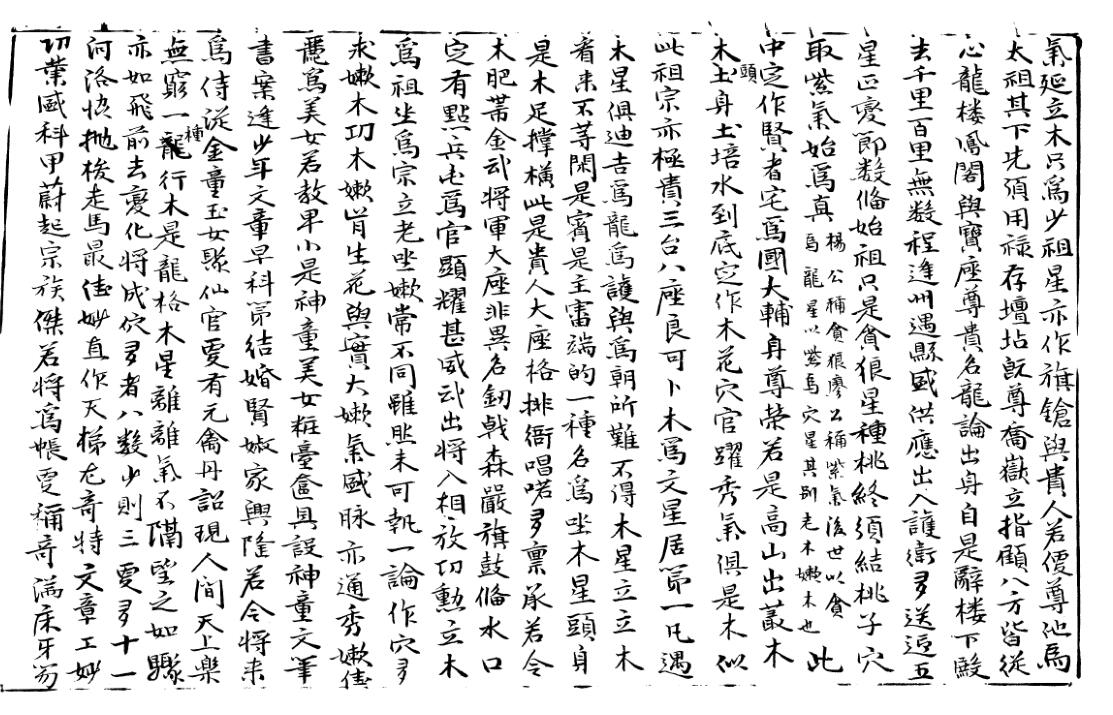 氣延立木只為少祖星亦作旗鎗與貴人若復尊他為
太祖其下先須用祿存壇坫旣尊喬嶽立指顧八方皆從
心龍楼鳳閣與寶座尊貴名龍論出身自是辭楼下殿
去千里百里無数程逢州遇縣盛供應出入護衛多送迎五
星正变節数俻始祖只是貪狼星種桃終須結桃子穴
取紫氣始為真楊公稱貪狼廖公稱紫氣後世以貪為龍星以紫為穴星其别老木嫩木也此
中定作賢者宅為國大輔身尊荣若是高山出叢木
木頭土身土培水到底定作木花穴官躍秀氣俱是木似
此祖宗亦極貴三台八座良可卜木為文星居第一凡遇
木星俱迪吉為龍為護與為朝所難不得木星立立木
看来不等閑是賓是主審端的一種名為坐木星頭身
是木足撑橫此是貴人大座格排衙唱喏多禀承若令
木肥帯金武将軍大座非異名釰戟森嚴旗鼓俻水口
定有點兵屯為官顯耀甚威武出将入相放功勳立木
為祖坐為宗立老坐嫩常不同雖然未可執一論作穴多
求嫩木功木嫩背生花與實大嫩氣盛脉亦通秀嫩佳
麗為美女若教卑小是神童美女粧臺奩具設神童文筆
書案逢少年文章早科第結婚賢淑家興隆若令将来
為侍從金童玉女聚仙官更有元禽丹詔現人间天上樂
無窮一種龍行木是龍格木星離離氣不隔望之如驟
亦如飛前去變化将成穴多者八数少則三更多十一
何洛悋抛梭走馬最佳妙直作天梯尤奇特文章工妙
功業盛科甲蔚起宗族傑若将為帳更稱奇满床牙笏